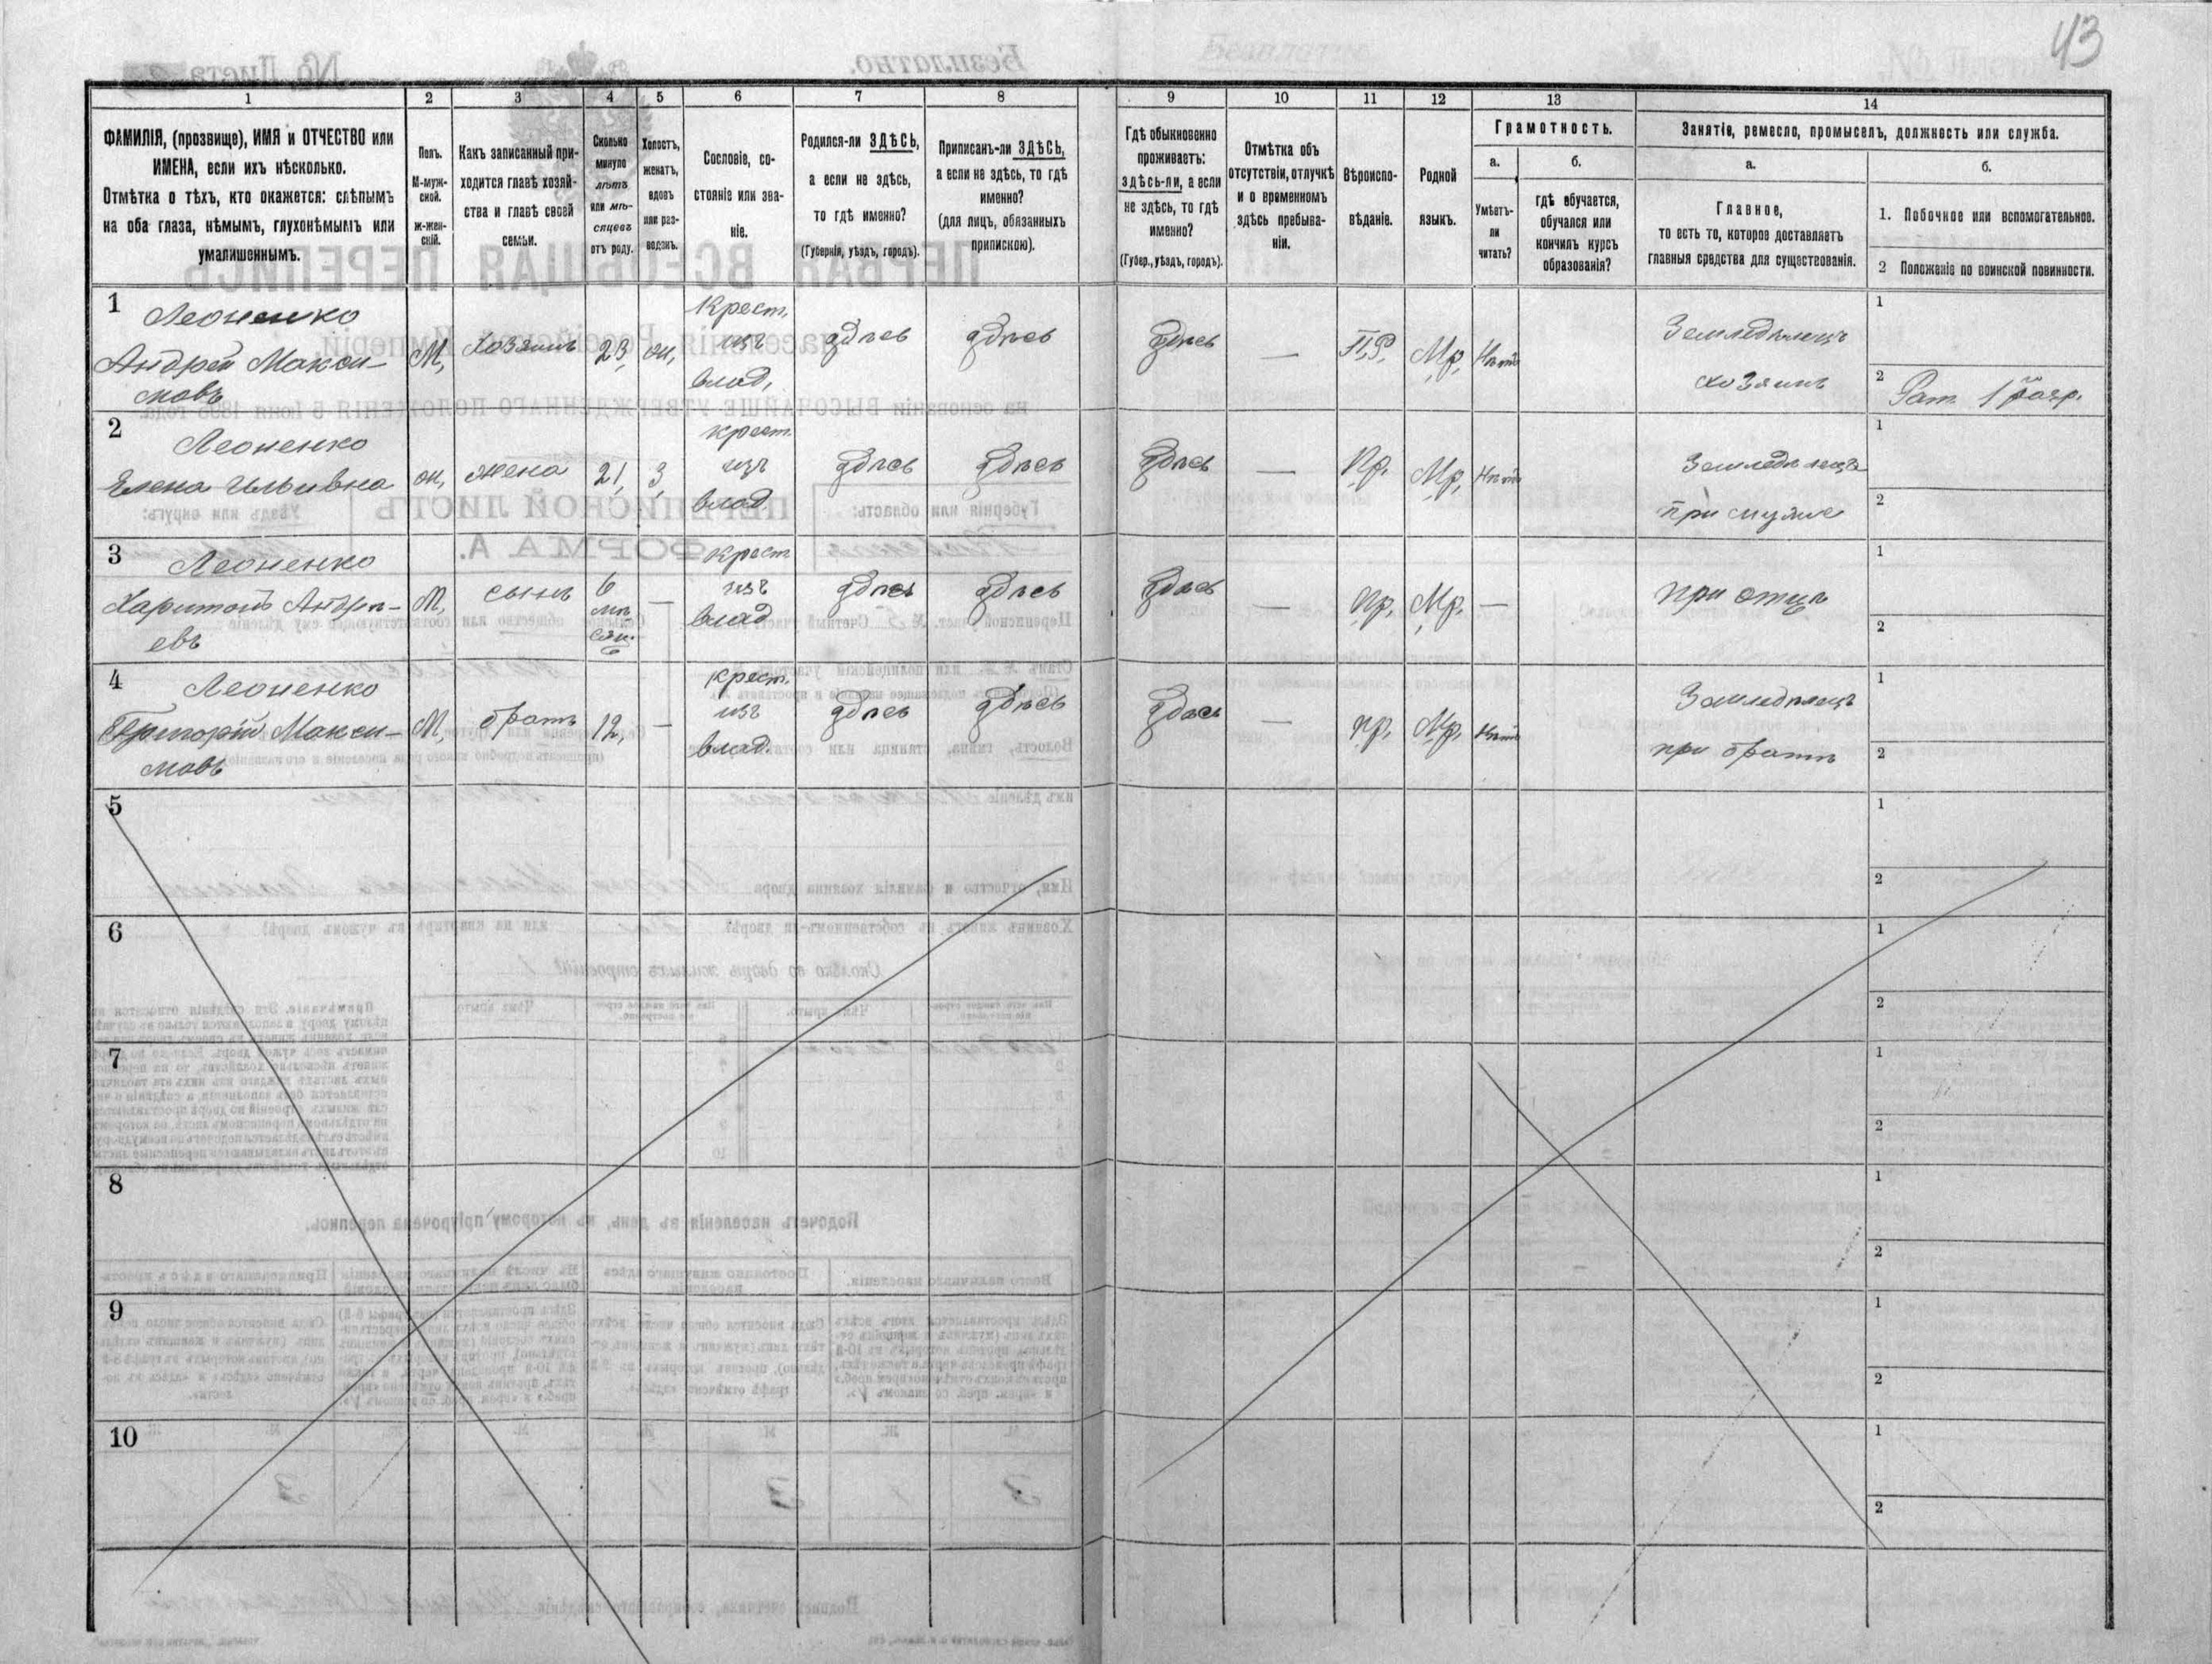 43
1
2
3
4
5
6
7
8
9
10
11
12
13
14
ФАМИЛІЯ, (прозвище), ИМЯ и ОТЧЕСТВО или
ИМЕНА, если ихъ нѣсколько.
Отмѣтка о тѣхъ, кто окажется: слѣпымъ
на оба глаза, нѣмымъ, глухонѣмымъ или
умалишеннымъ.
Полъ.
М-муж-
ской.
ж-жен-
скій.
Какъ записанный при-
ходится главѣ хозяй-
ства и главѣ своей
семьи.
Сколько
минуло
лѣтъ
или мѣ-
сяцевъ
отъ роду.
Холостъ,
женатъ,
вдовъ
или раз-
веденъ.
Сословіе, со-
стояніе или зва-
ніе.
Родился-ли ЗДѢСЬ,
а если не здѣсь,
то гдѣ именно?
(Губернія, уѣздъ, городъ).
Приписанъ-ли ЗДѢСЬ,
а если не здѣсь, то гдѣ
именно?
(для лицъ, обязанныхъ
припискою).
Гдѣ обыкновенно
проживаетъ:
здѣсь-ли, а если
не здѣсь, то гдѣ
именно?
(Губер., уѣздъ, городъ).
Отмѣтка объ
отсутствіи, отлучкѣ
и о временномъ
здѣсь пребыва-
ніи.
Вѣроиспо-
вѣданіе.
Родной
языкъ.
Грамотность.
а.
Умѣетъ-
ли
читать?
б.
гдѣ обучается,
обучался или
кончилъ курсъ
образованія?
Занятіе, ремесло, промыселъ, должность или служба.
а.
Главное,
то есть то, которое доставляетъ
главныя средства для существованія.
б.
1. Побочное или вспомогательное.
2 Положеніе по воинской повинности.
1
Леоненко
Андрей Макси-
мовъ
М,
хозяинъ
23,
ж,
Крест.
изъ
влад,
здѣсь
здѣсь
здѣсь
—
П.Р.
Мр.
Нѣтъ
Земледѣлецъ
хозяинъ
1
2
Рат. 1го разр.
2
Леоненко
Елена Ильивна
ж,
жена
21,
З
крест.
изъ
влад.
здѣсь
здѣсь
здѣсь
—
Пр.
Мр,
Нѣтъ
Земледѣлецъ
при мужѣ
1
2
3
Леоненко
Харитонъ Андрѣ-
евъ
М,
сынъ
6
мѣ
сяц.
—
крест
изъ
влад
здѣсь
здѣсь
здѣсь
—
Пр,
Мр.
—
при отцѣ
1
2
4
Леоненко
Григорій Макси-
мовъ
М,
братъ
12,
—
крест.
изъ
влад.
здѣсь
здѣсь
здѣсь
—
пр.
Мр.
Нѣтъ
Земледѣлецъ
при братѣ
1
2
5
1
2
6
1
2
7
1
2
8
1
2
9
1
2
10
1
2